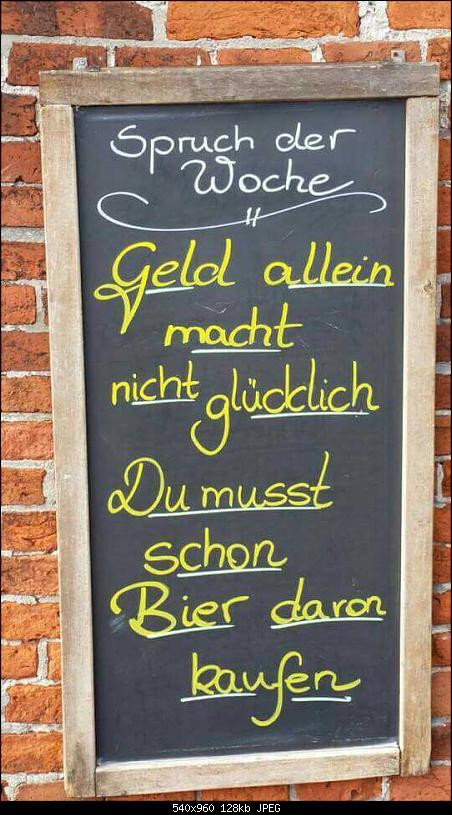 Spruch der
Woche
Geld allein
macht
nicht glücklich
Du musst
schon
Bier daron
kaufen
540x960 128kb JPEG